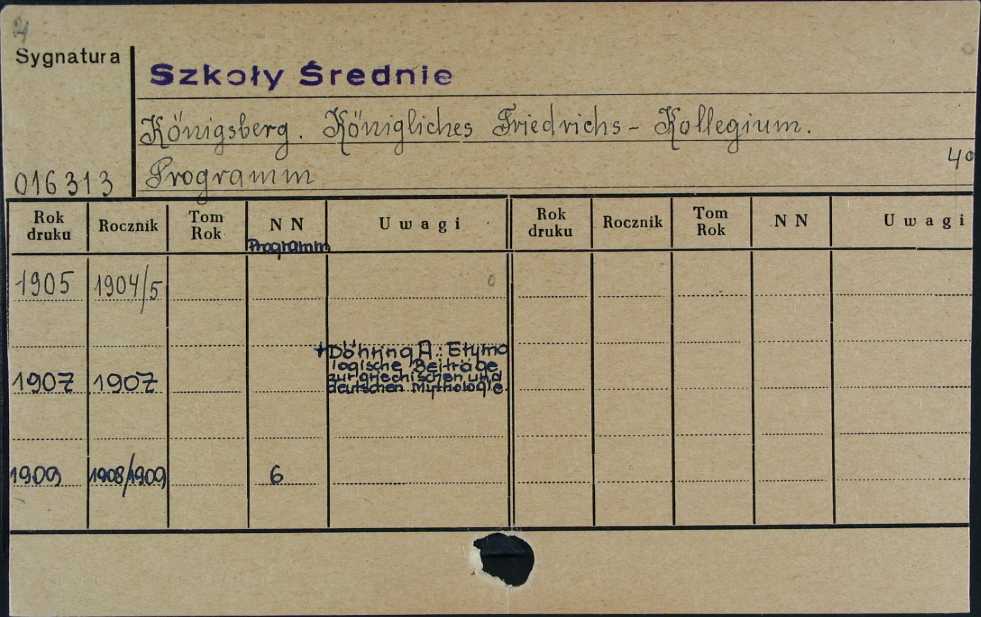 Sygnatura
Szkoły Średnie
Königsberg. Königliches Friedrichs-Kollegium.
4o
016313 Programm
Rok druku Rocznik Tom Rok NN Uwagi Rok druku Rocznik Tom Rok NN Uwagi
Programm
1905 1904/5
+Döhring A.: Etymo
logische Beiträge
zur griechischen und
1907 1907 deutschen Mythologie
1909 1908/1909 6